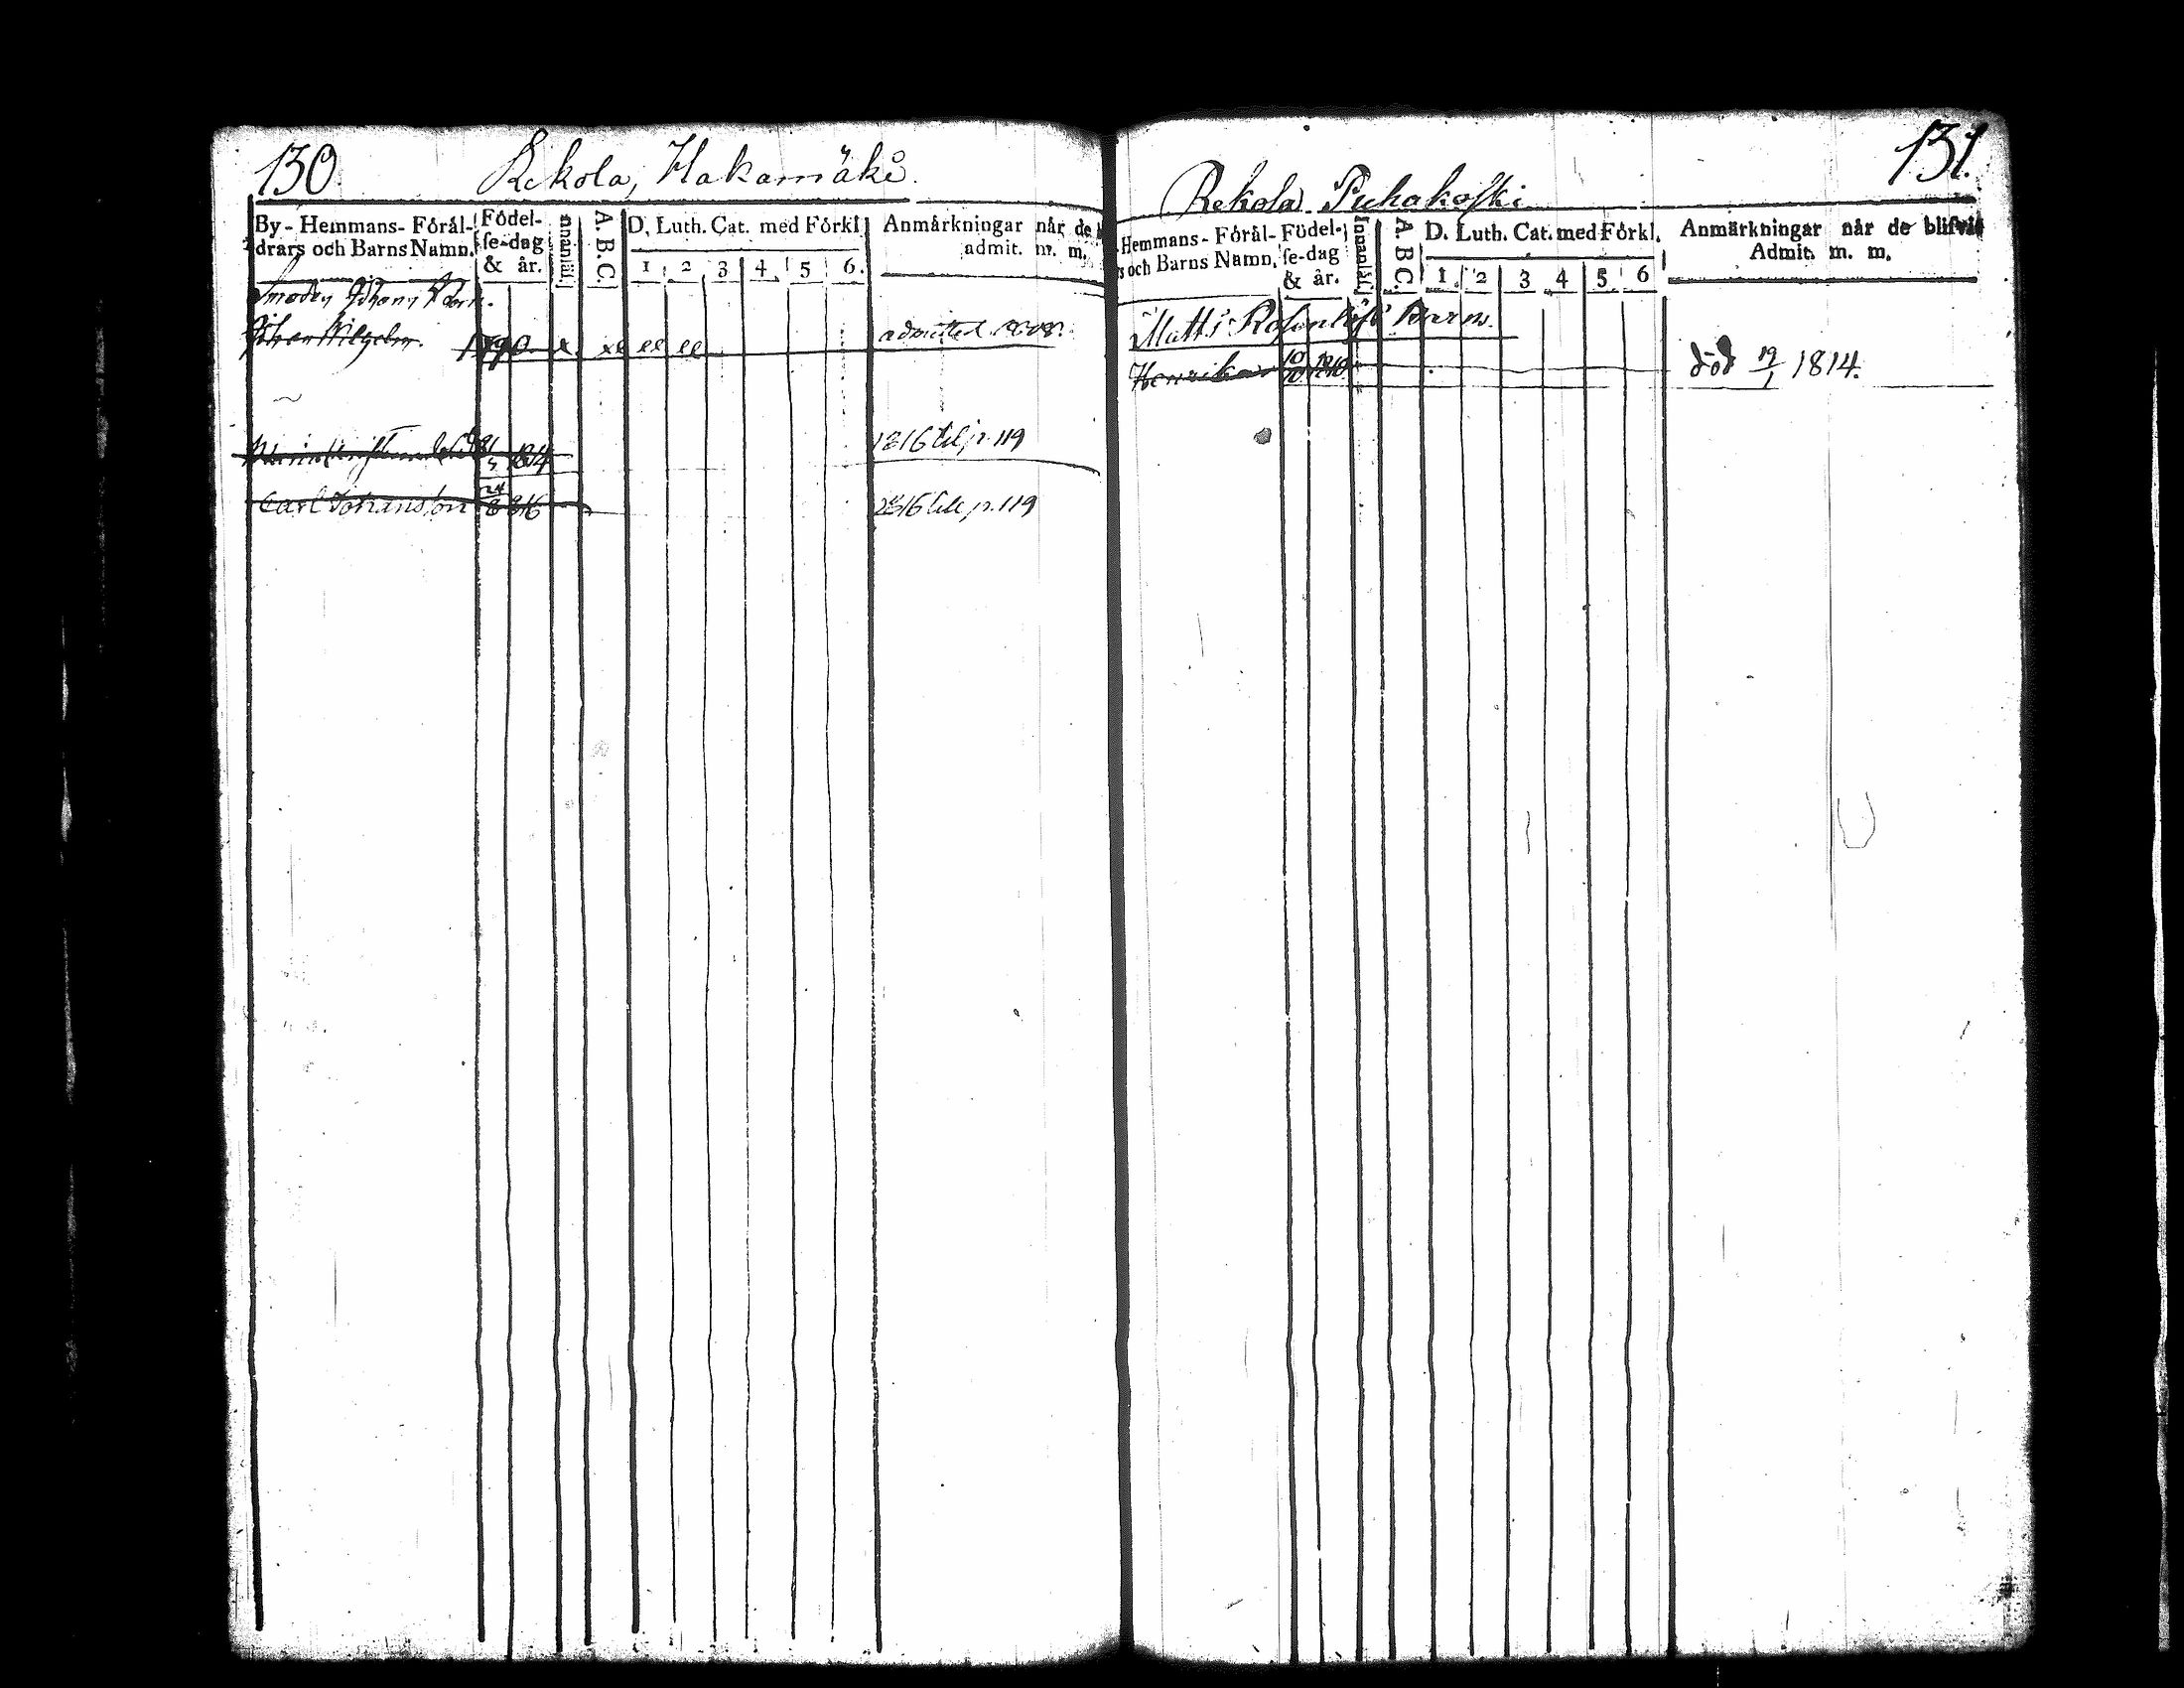 130 Rekola, Hakamäki.
By- Hemmans- Förål- Födel- Innanläs. A. B. C. D. Luth. Cat. med Förkl. Anmårkningar når de
drars och Barns Namn. se-dag admit. m. m.
& år. 1 2 3 4 5 6.
Smeden Johans Barn.
Johan Wilhelm. 1790. x xx ll ll admitterad 1808.
Maria 1814 1816 till p. 119
Carl Johansson 24/8 816 1816 till p. 119
131.
Rekola Puhakoski
Hemmans- Förål- Födel- Innanläs. A. B. C. D. Luth. Cat. med Förkl. Anmärkningar når de blifvit
och Barns Namn. se-dag Admit. m. m.
& år. 1 2 3 4 5 6
Matts Rosenlöfs Barn.
Henrika 10/10 1810 död 19/1 1814.